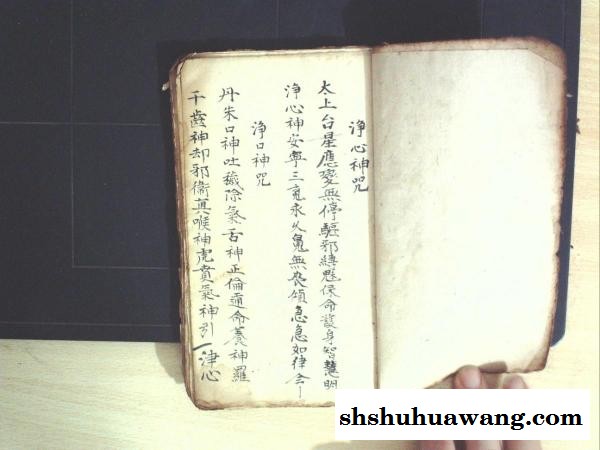 淨心神咒
太上台星應變無停驅邪縛魅保命護身智慧明
淨心神安寧三魂永久魄無喪傾急急如律令
淨口神咒
丹朱口神吐穢除氣舌神正倫通命養神羅
千齒神却邪衛真喉神虎賁氣神引津心
shshuhuawang.com